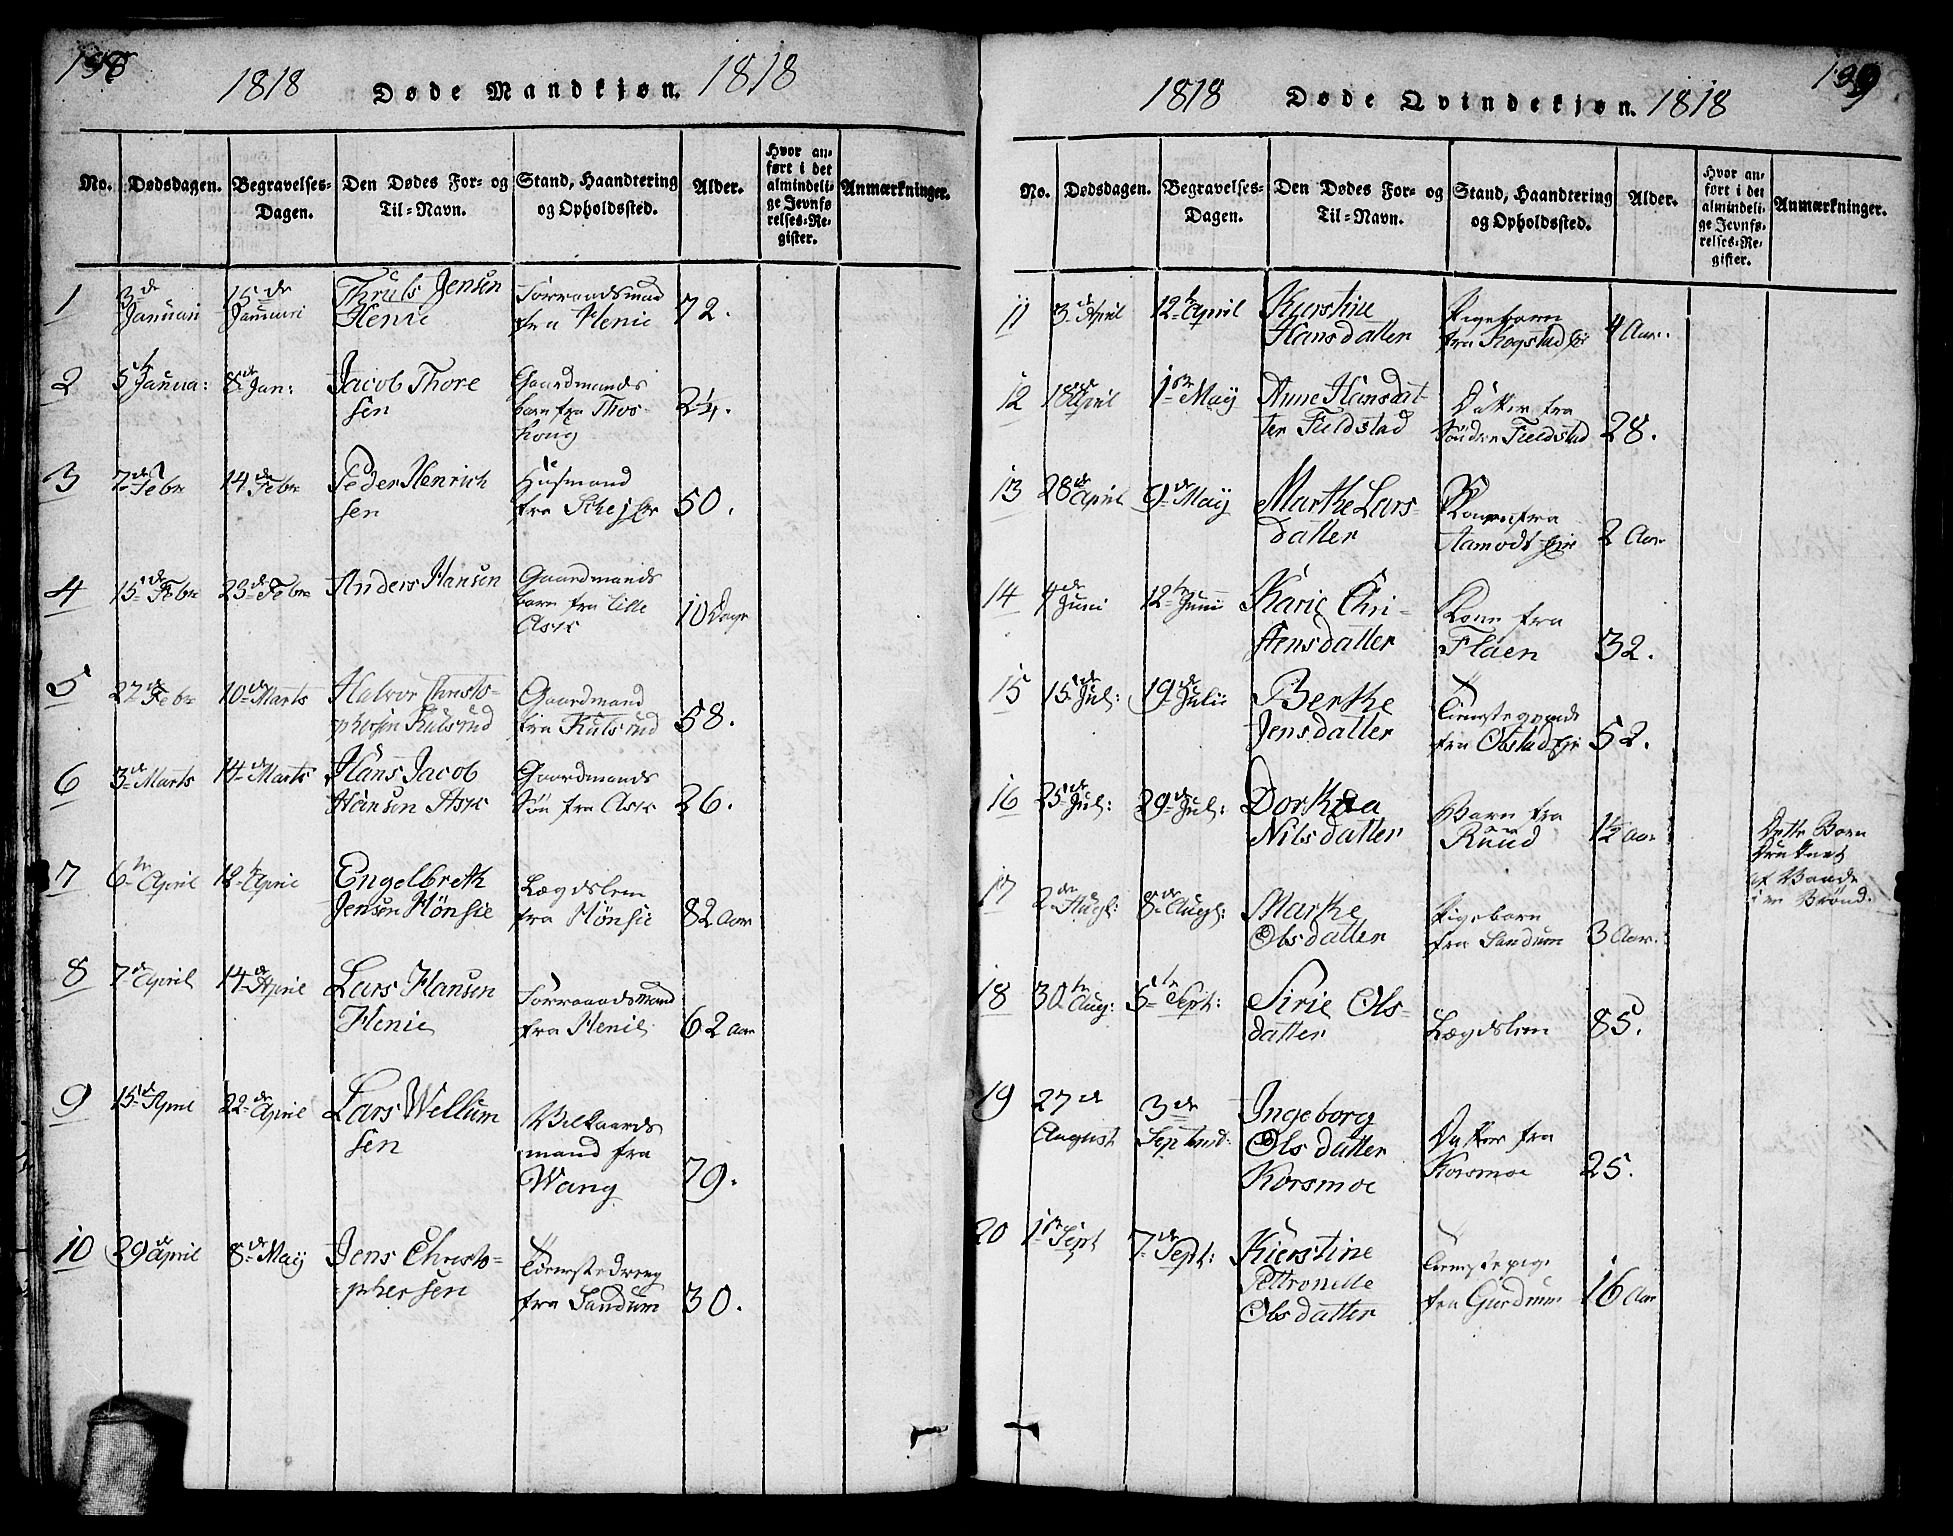 138
1818 Døde Mandkjøn. 1818
No. Dødsdagen. Begravelses-Dagen. Den Dødes For- og Til-Navn. Stand, Haandtering og Opholdssted. Alder. Hvor anført i det almindelige Jevnførelses-Register. Anmærkninger.
1 3de Januari 15de Januari Thruls Jensen Henie Forraadsmand fra Henie 72.
2 5te Janua: 8de Jan: Jacob Thoresen Gaardmands barn fra 2¼.
3 7de Febr 14de Febr Peder Henrichsen Huusmand fra 50.
4 15de Febr 23de Febr Anders Hansen Gaardmands barn fra Lille Asper 10 Dage
5 27de Febr 10de Marts Halvor Christophersen Kulsrud Gaardmand fra Kulsrud 58.
6 3de Marts 14de Marts Hans Jacob Hansen Asper Gaardmands Søn fra Asper 26.
7 6te April 12te April Engelbreth Jensen Hönsie Lægdslem fra Hönsie 82 Aar
8 7de April 14de April Lars Hansen Henie Forraadsmand fra Henie 62 Aar
9 15de April 22de April Lars Wellumsen mand fra Wang 79.
10 29de April 8de Maij Jens Christophersen Tienstedreng fra Sandum 30.
139
1818 Døde Qvindekjøn. 1818
No. Dødsdagen. Begravelses-Dagen. Den Dødes For- og Til-Navn. Stand, Haandtering og Opholdssted. Alder. Hvor anført i det almindelige Jevnførelses-Register. Anmærkninger.
11 3de April 12te April Kirstine Hansdatter Pigebarn fra Kogstad 4 Aar.
12 18de April 1ste Maij Anne Hansdatter Fieldstad Datter fra Söndre Fieldstad 28.
13 28de April 9de Maij Marthe Larsdatter fra Aamodt 2 Aar
14 4de Junii 12te Junii Karie Christensdatter Kone fra Flaen 32.
15 15de Jul: 19de Julii Berthe Jensdatter fra Olstad 52.
16 25de Jul: 29de Jul: Dorthea Nilsdatter Barn fra Ruud 1½ Aar Dette Barn Druknet af Vaade i en Brönd.
17 2den Aug: 8de Aug: Marthe Olsdatter Pigebarn fra Sandum 3 Aar.
18 30te Aug: 5te Sept: Sirie Olsdatter Lægdslem 85.
19 27de August 3de Septemb: Ingeborg Olsdatter Korsmoe Datter fra Korsmoe 25.
20 1ste Sept 7de Sept: Kierstine Pettronelle Olsdatter Tienstepige fra Giordrum 16 Aar